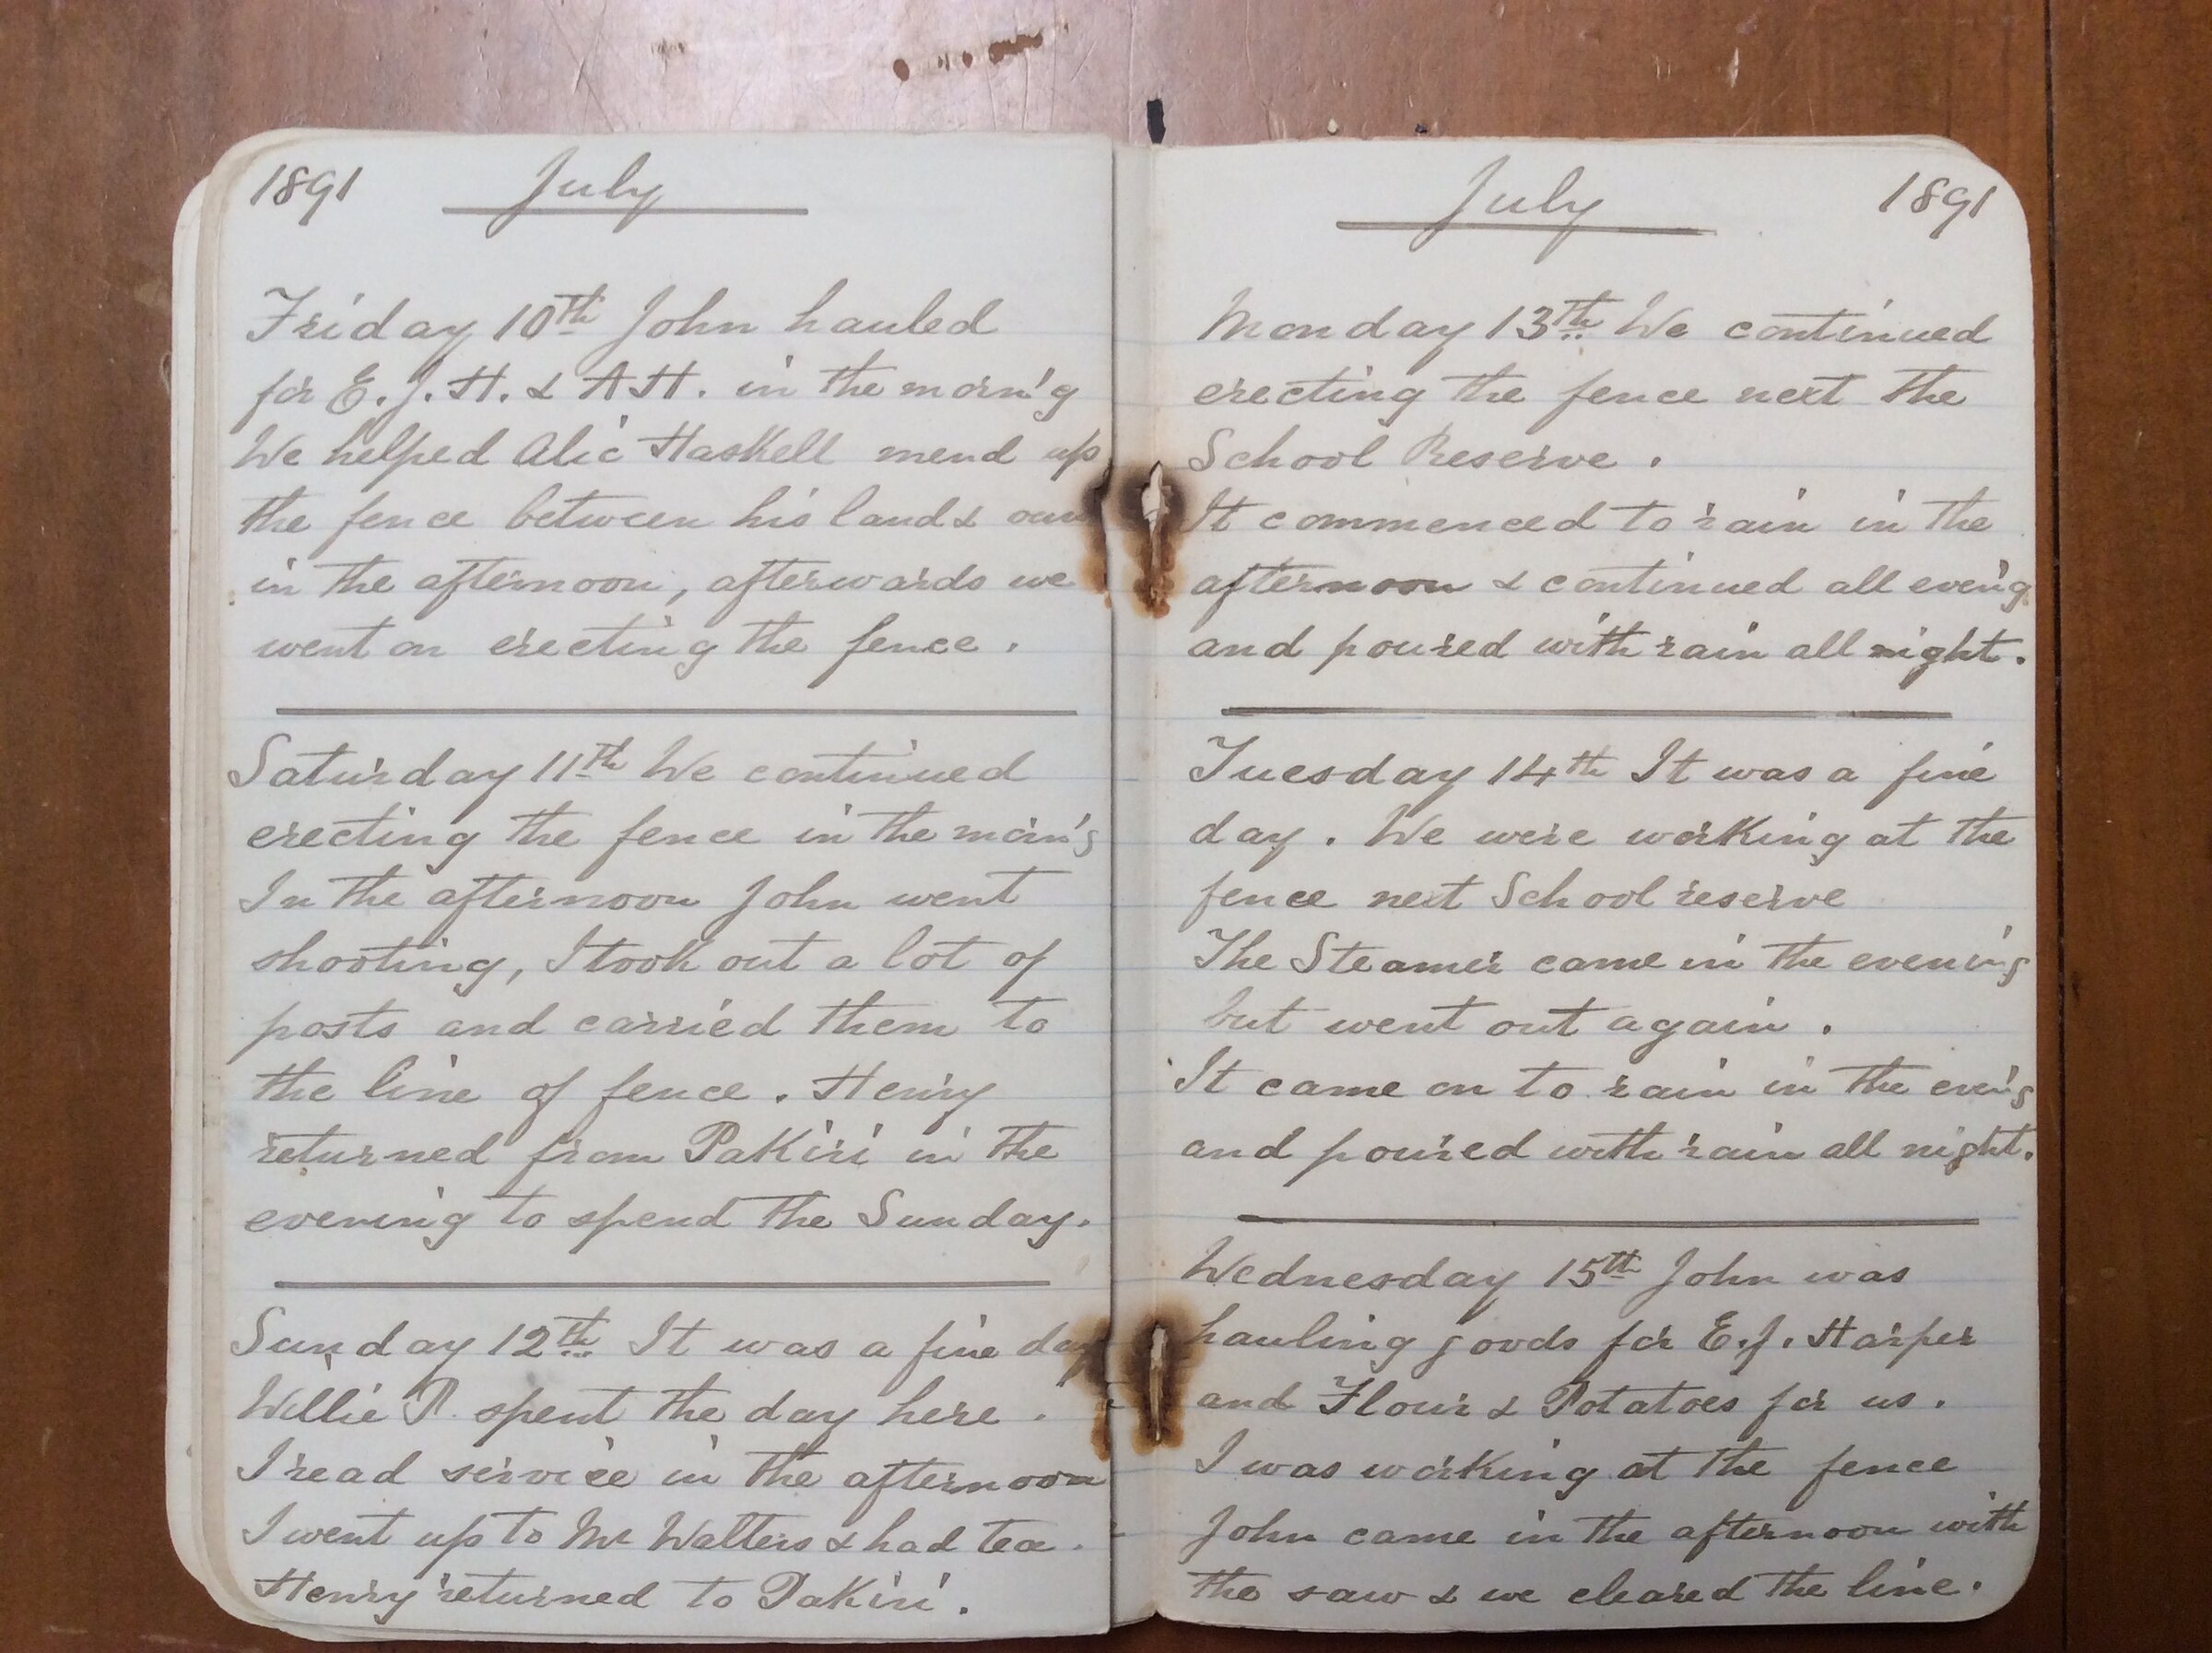 1891 July
Friday 10th John hauled
for E.J.H. & A H. in the morn'g
We helped Alic Haskell mend up
the fence between his land & our
in the afternoon, afterwards we
went on erecting the fence.
Saturday 11th We continued
erecting the fence in the morn'g
In the afternoon John went
shooting, I took out a lot of
posts and carried them to
the line of fence. Henry
returned from Pakiri in the
evening to spend the Sunday.
Sunday 12th It was a fine day
Willie P. spent the day here.
I read service in the afternoon
I went up to Mr Walters & had tea.
Henry returned to Pakiri.
July 1891
Monday 13th We continued
erecting the fence next the
School Reserve.
It commenced to rain in the
afternoon & continued all even'g
and poured with rain all night.
Tuesday 14th It was a fine
day. We were working at the
fence next School reserve
The Steamer came in the evening
but went out again.
It came on to rain in the even'g
and poured with rain all night.
Wednesday 15th John was
hauling goods for E.J. Harper
and Flour & Potatoes for us.
I was working at the fence
John came in the afternoon with
the saw & we cleared the line.